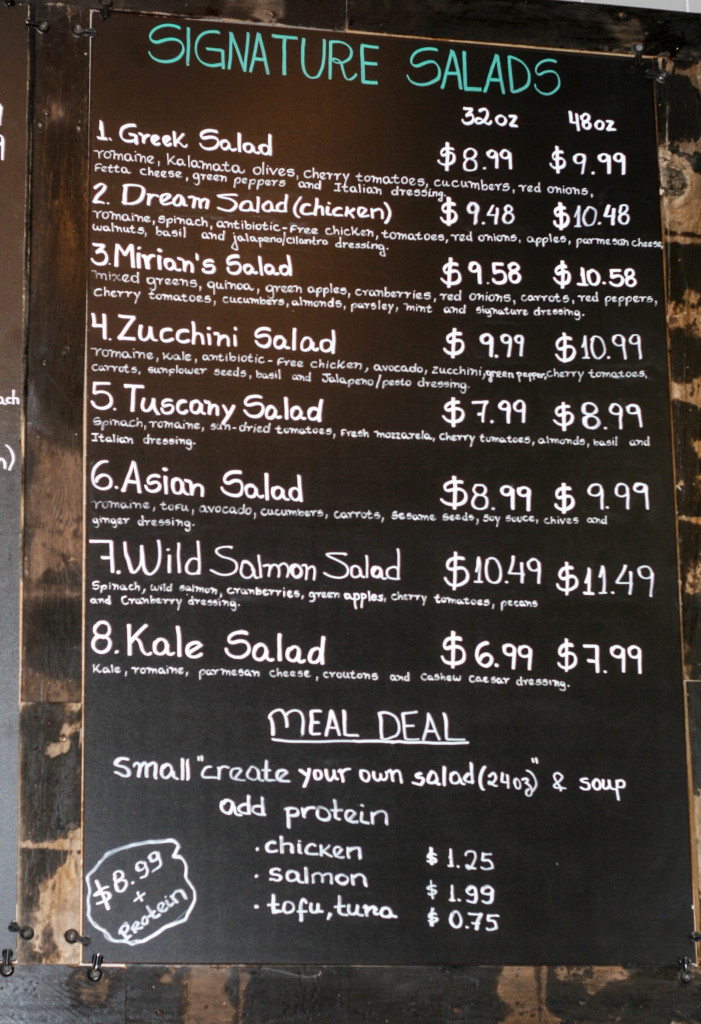 SIGNATURE SALADS
32oz 48oz
1. Greek Salad $8.99 $9.99
romaine, Kalamata olives, cherry tomatoes, cucumbers, red onions,
Fetta cheese, green peppers and Italian dressing.
2. Dream Salad (chicken) $9.48 $10.48
romaine, spinach, antibiotic-free chicken, tomatoes, red onions, apples, parmesan cheese,
walnuts, basil and jalapeno/cilantro dressing.
3. Mirian's Salad $9.58 $10.58
mixed greens, quinoa, green apples, cranberries, red onions, carrots, red peppers,
cherry tomatoes, cucumbers, almonds, parsley, mint and signature dressing.
4. Zucchini Salad $9.99 $10.99
romaine, kale, antibiotic-free chicken, avocado, zucchini, green pepper, cherry tomatoes,
carrots, sunflower seeds, basil and Jalapeno/pesto dressing.
5. Tuscany Salad $7.99 $8.99
Spinach, romaine, sun-dried tomatoes, Fresh mozzarela, cherry tomatoes, almonds, basil and
Italian dressing.
6. Asian Salad $8.99 $9.99
romaine, tofu, avocado, cucumbers, carrots, sesame seeds, soy souce, chives and
ginger dressing.
7. Wild Salmon Salad $10.49 $11.49
Spinach, wild salmon, cranberries, green apples, cherry tomatoes, pecans
and Cranberry dressing.
8. Kale Salad $6.99 $7.99
Kale, romaine, parmesan cheese, croutons and cashew caesar dressing.
MEAL DEAL
Small "create your own salad (24oz)" & soup
add protein
. chicken $1.25
. salmon $1.99
. tofu, tuna $0.75
$8.99
+
Protein